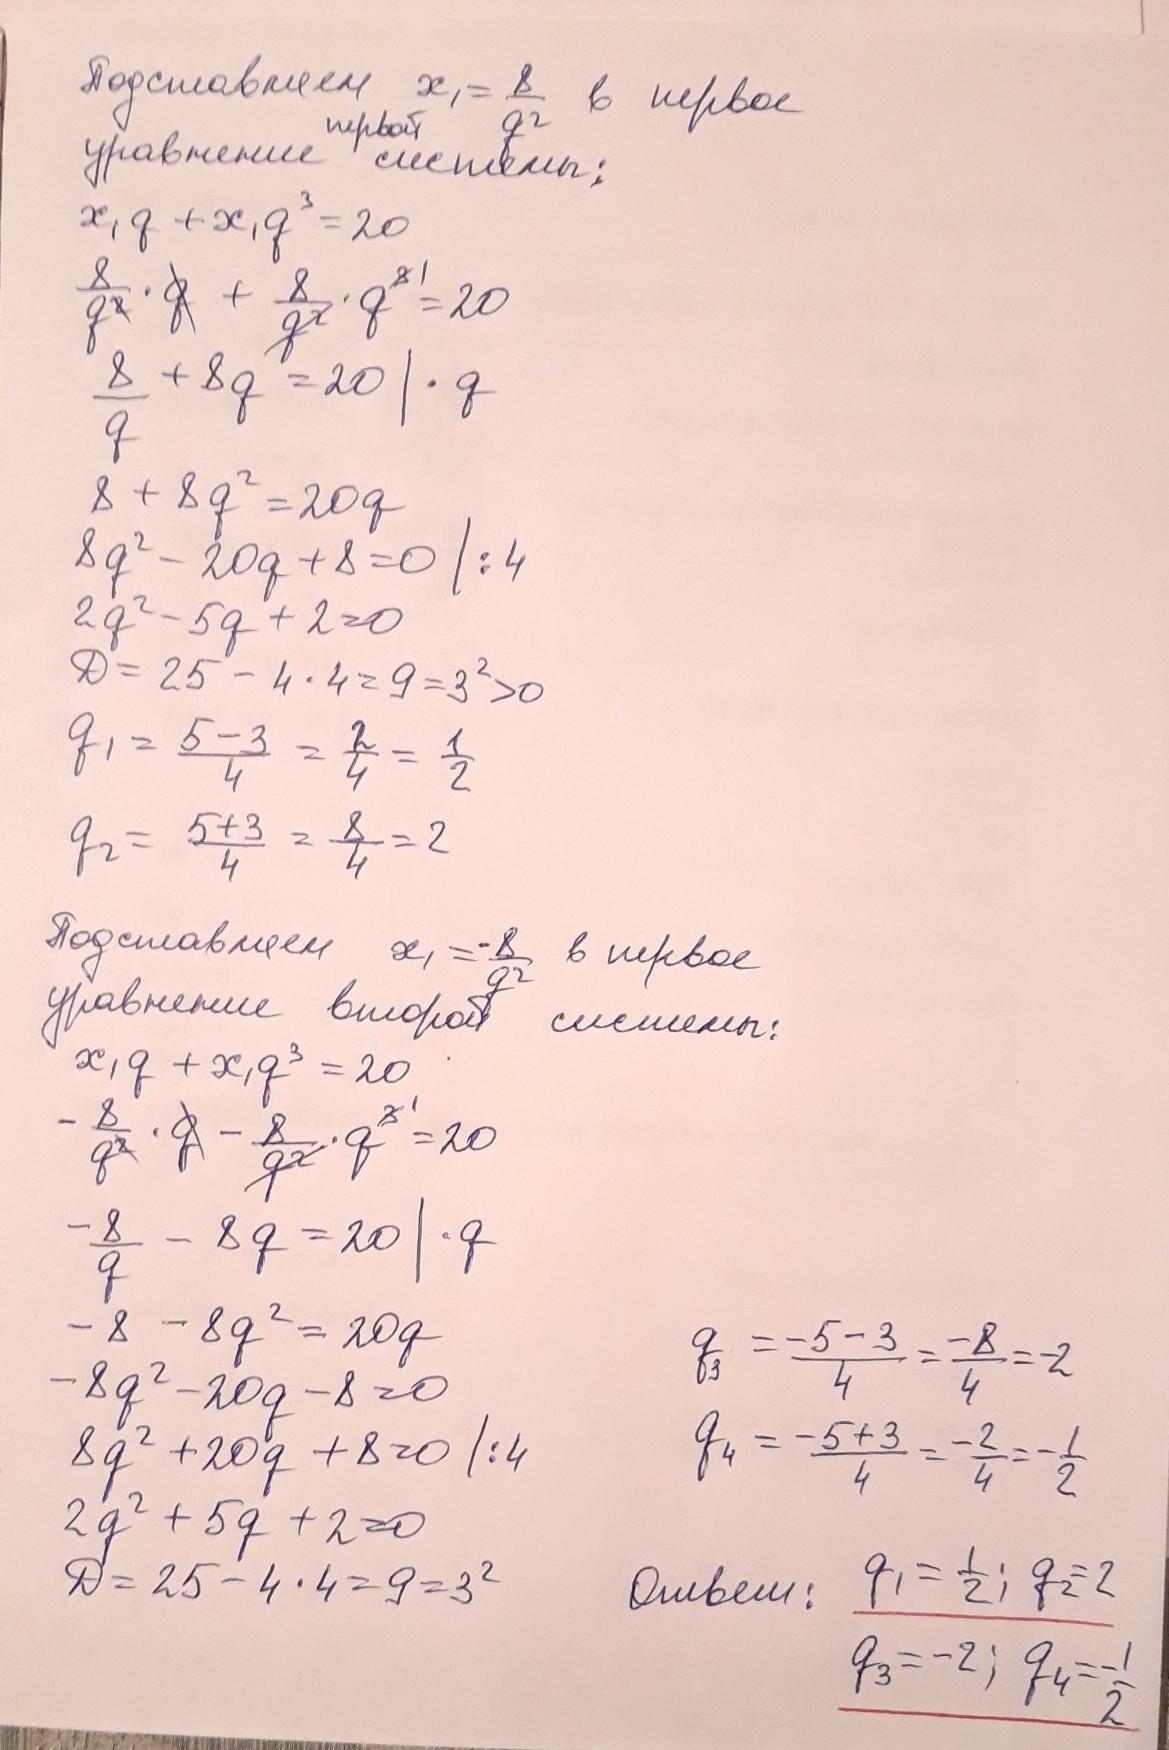 Подставляем x₁ = 8/q² в первое
уравнение первой системы:
x₁q + x₁q³ = 20
8/q² · q + 8/q² · q³ ¹ = 20
8/q + 8q = 20 | · q
8 + 8q² = 20q
8q² - 20q + 8 = 0 | : 4
2q² - 5q + 2 = 0
D = 25 - 4 · 4 = 9 = 3² > 0
q₁ = (5 - 3)/4 = 2/4 = 1/2
q₂ = (5 + 3)/4 = 8/4 = 2
Подставляем x₁ = -8/q² в первое
уравнение второй системы:
x₁q + x₁q³ = 20
- 8/q² · q - 8/q² · q³ ¹ = 20
-8/q - 8q = 20 | · q
-8 - 8q² = 20q
-8q² - 20q - 8 = 0
8q² + 20q + 8 = 0 | : 4
2q² + 5q + 2 = 0
D = 25 - 4 · 4 = 9 = 3²
q₃ = (-5 - 3)/4 = -8/4 = -2
q₄ = (-5 + 3)/4 = -2/4 = -1/2
Ответ: q₁ = 1/2; q₂ = 2
q₃ = -2; q₄ = -1/2